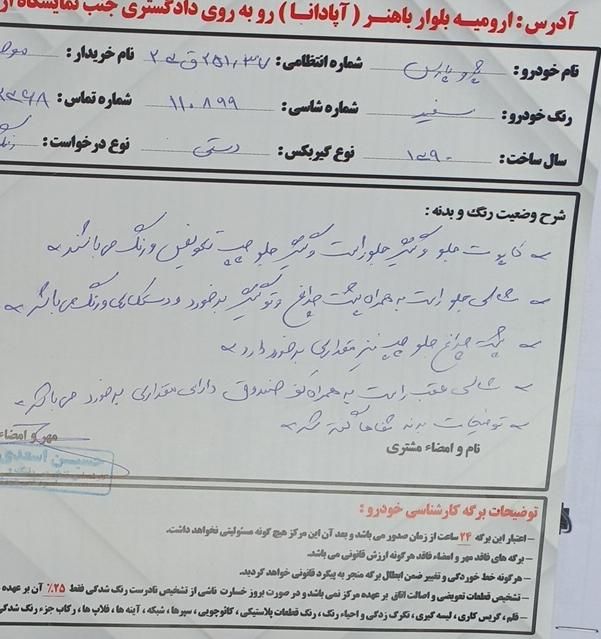 آدرس : ارومیه بلوار باهنر ( آپادانا ) رو به روی دادگستری جنب نمایشگاه
نام خودرو : پژو پارس شماره انتظامی : نام خریدار :
رنگ خودرو : سفید شماره شاسی : ۱۱۰۸۹۹ شماره تماس :
سال ساخت : ۱۳۹۰ نوع گیربکس : دستی نوع درخواست :
شرح وضعیت رنگ و بدنه :
کاپوت جلو و گلگیر جلو راست و گلگیر جلو چپ تعویض و رنگ می باشند
شاسی جلو راست به همراه پشت چراغ و تو گلگیر برخورد و دستکاری و رنگ می باشد
پشت چراغ جلو چپ نیز مقداری برخورد دارد
شاسی عقب راست به همراه کف صندوق دارای مقداری برخورد می باشد
توضیحات بدنه شفاها گفته شد
مهر و امضاء
نام و امضاء مشتری
حسین اسعدی
توضیحات برگه کارشناسی خودرو :
– اعتبار این برگه ۲۴ ساعت از زمان صدور می باشد و بعد آن این مرکز هیچ گونه مسئولیتی نخواهد داشت.
– برگه های فاقد مهر و امضاء فاقد هرگونه ارزش قانونی می باشد.
– هرگونه خط خوردگی و تغییر ضمن ابطال برگه منجر به پیگرد قانونی خواهد گردید.
– تشخیص قطعات تعویضی و اصالت اتاق بر عهده مرکز نمی باشد و در صورت بروز خسارت ناشی از تشخیص نادرست رنگ شدگی فقط ۲۵٪ آن بر عهده
– قلم، گریس کاری، لیسه گیری، تگرگ زدگی و احیاء رنگ، رنگ قطعات پلاستیکی، کائوچویی، سپرها، شبکه، آینه ها، قلاب ها، رکاب جزء رنگ شدگی